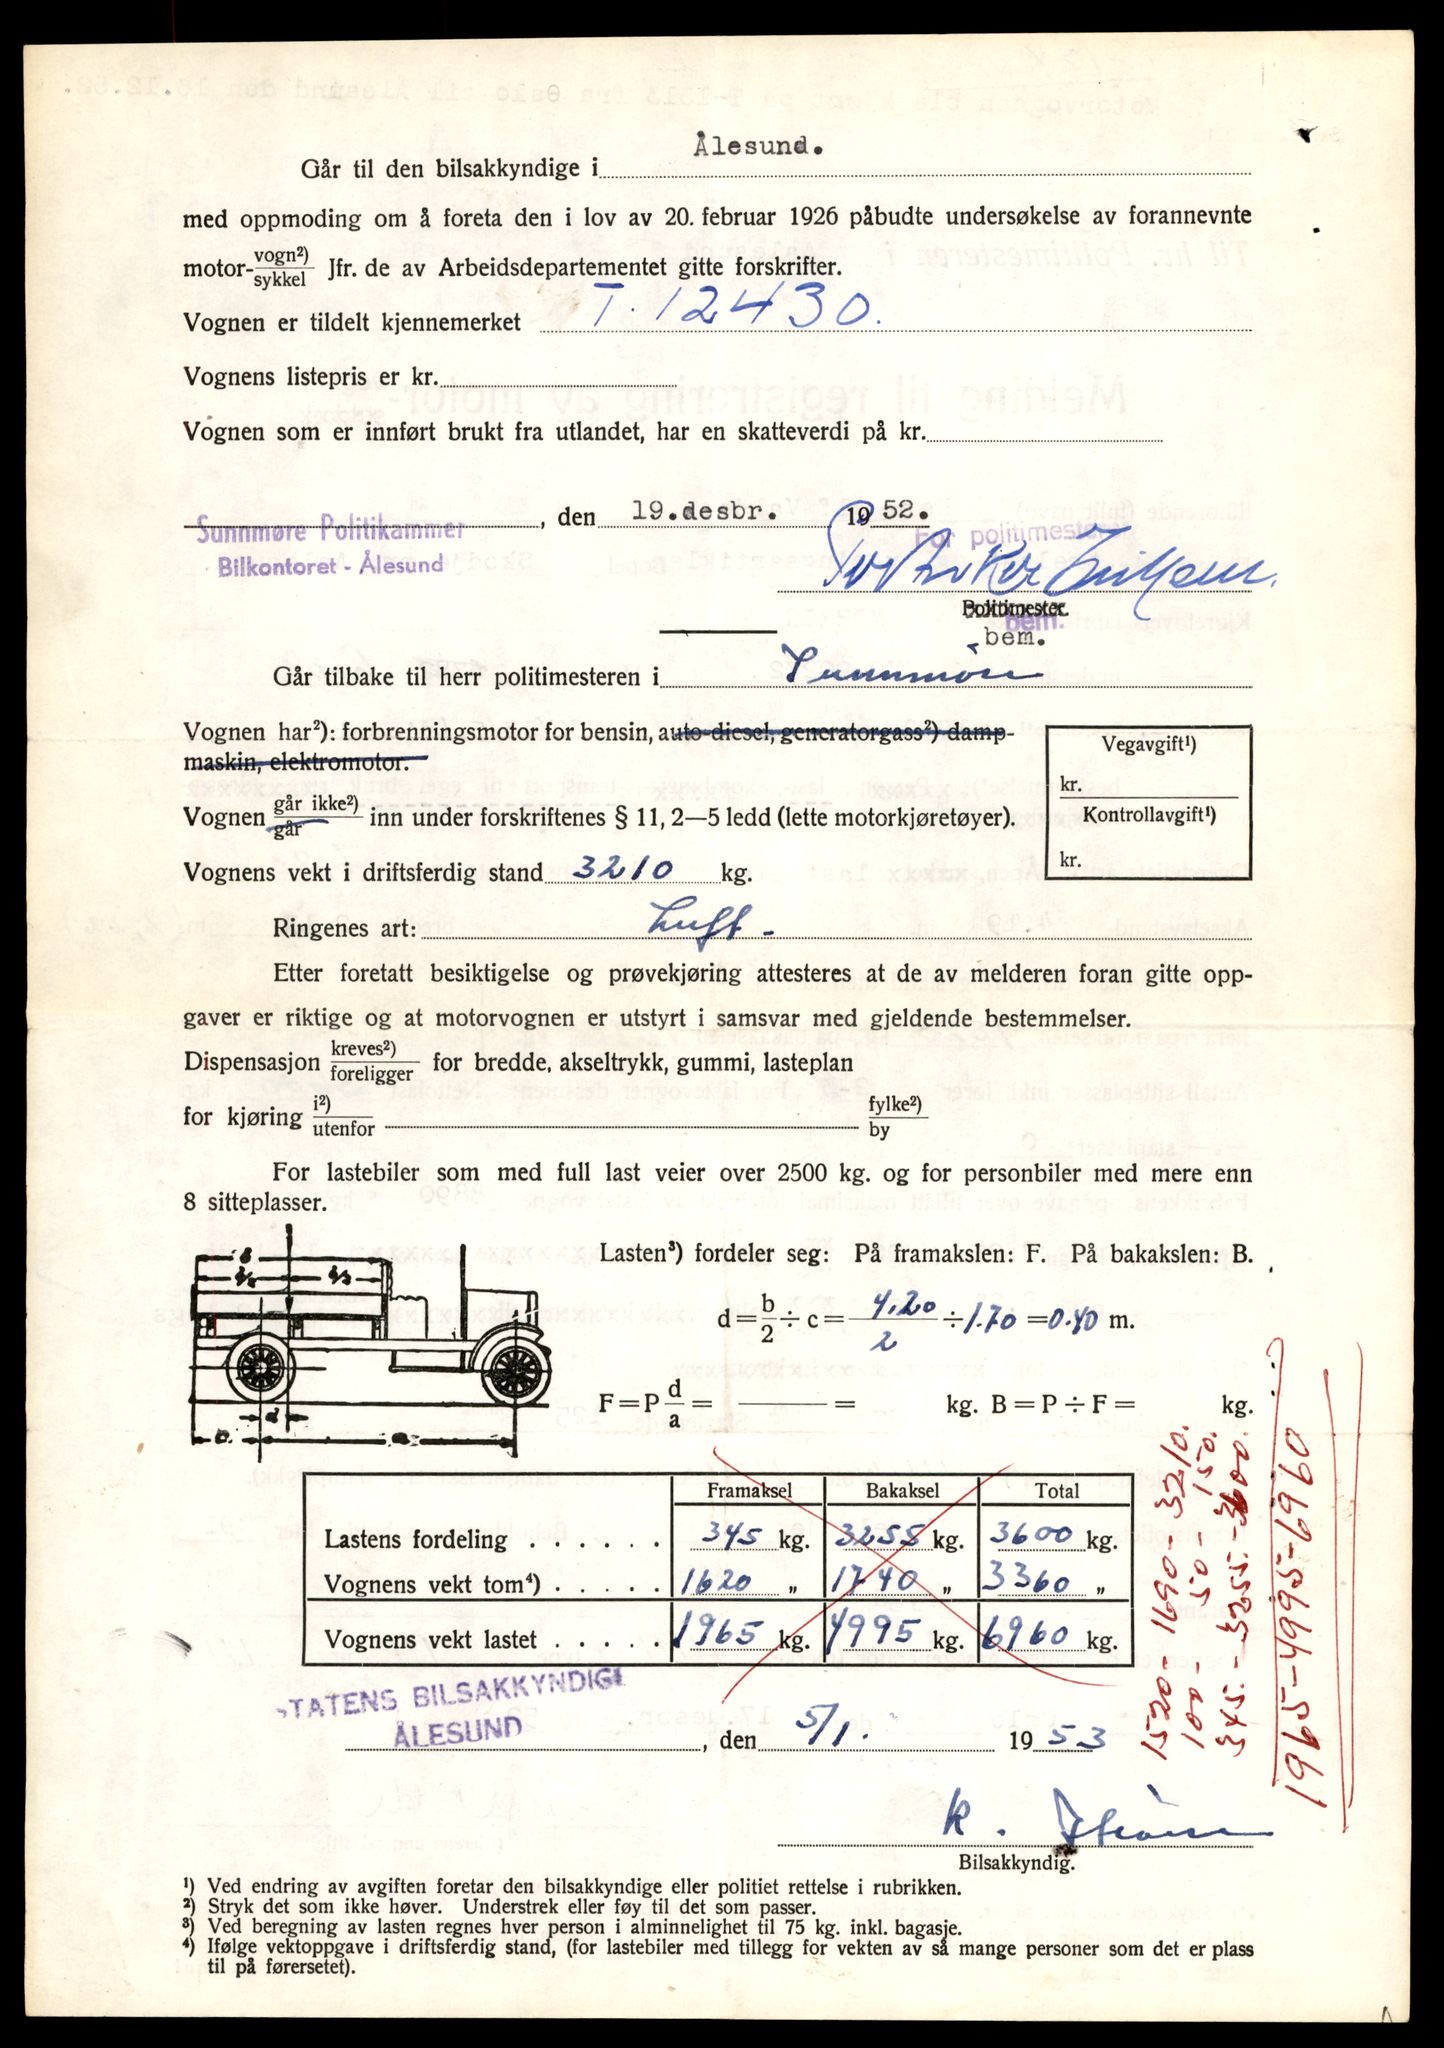 Ålesund.
Går til den bilsakkyndige i
med oppmoding om å foreta den i lov av 20. februar 1926 påbudte undersøkelse av forannevnte
motor- vogn²) / sykkel Jfr. de av Arbeidsdepartementet gitte forskrifter.
Vognen er tildelt kjennemerket T. 12430.
Vognens listepris er kr.
Vognen som er innført brukt fra utlandet, har en skatteverdi på kr.
Sunnmøre Politikammer , den 19.desbr. 19 52.
Bilkontoret - Ålesund
For politimesteren
Politimester.
bem.
bem.
Går tilbake til herr politimesteren i Sunnmöre
Vognen har²): forbrenningsmotor for bensin, auto-diesel, generatorgass²) damp-
maskin, elektromotor.
Vegavgift¹)
kr.
Kontrollavgift¹)
kr.
Vognen går ikke²) / går inn under forskriftenes § 11, 2—5 ledd (lette motorkjøretøyer).
Vognens vekt i driftsferdig stand 3210 kg.
Ringenes art: Luft -
Etter foretatt besiktigelse og prøvekjøring attesteres at de av melderen foran gitte opp-
gaver er riktige og at motorvognen er utstyrt i samsvar med gjeldende bestemmelser.
Dispensasjon kreves²) / foreligger for bredde, akseltrykk, gummi, lasteplan
for kjøring i²) / utenfor fylke²) / by
For lastebiler som med full last veier over 2500 kg. og for personbiler med mere enn
8 sitteplasser.
Lasten³) fordeler seg: På framakslen: F. På bakakslen: B.
d = b/2 ÷ c = 4,20/2 ÷ 1.70 = 0.40 m.
F = P d/a = — = kg. B = P ÷ F = kg.
Framaksel Bakaksel Total
Lastens fordeling . . . . . . 345 kg. 3255 kg. 3600 kg.
Vognens vekt tom⁴) . . . . . 1620 „ 1740 „ 3360 „
Vognens vekt lastet . . . . . 1965 kg. 4995 kg. 6960 kg.
1520 - 1690 - 3210.
100 - 50 - 150.
345. - 3255. - 3600.
1965-4995-6960
STATENS BILSAKKYNDIGE
ÅLESUND
, den 5/1. 19 53
K.
Bilsakkyndig.
¹) Ved endring av avgiften foretar den bilsakkyndige eller politiet rettelse i rubrikken.
²) Stryk det som ikke høver. Understrek eller føy til det som passer.
³) Ved beregning av lasten regnes hver person i alminnelighet til 75 kg. inkl. bagasje.
⁴) Ifølge vektoppgave i driftsferdig stand, (for lastebiler med tillegg for vekten av så mange personer som det er plass
til på førersetet).